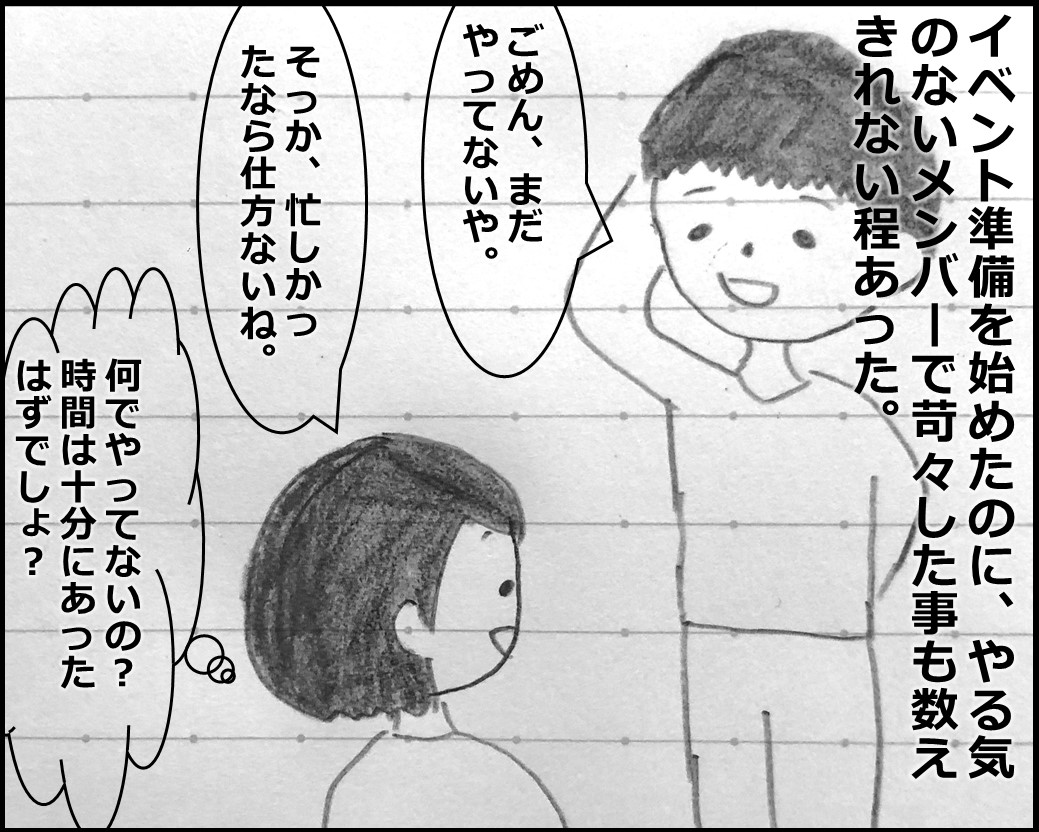 イベント準備を始めたのに、やる気
のないメンバーで苛々した事も数え
きれない程あった。
ごめん、まだ
やってないや。
そっか、忙しかっ
たなら仕方ないね。
何でやってないの？
時間は十分にあった
はずでしょ？